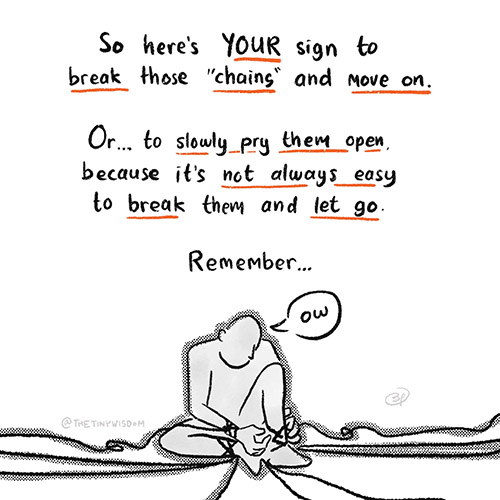 So here's YOUR sign to
break those "chains" and move on.
Or... to slowly pry them open,
because it's not always easy
to break them and let go.
Remember...
ow
@THETINYWISDOM